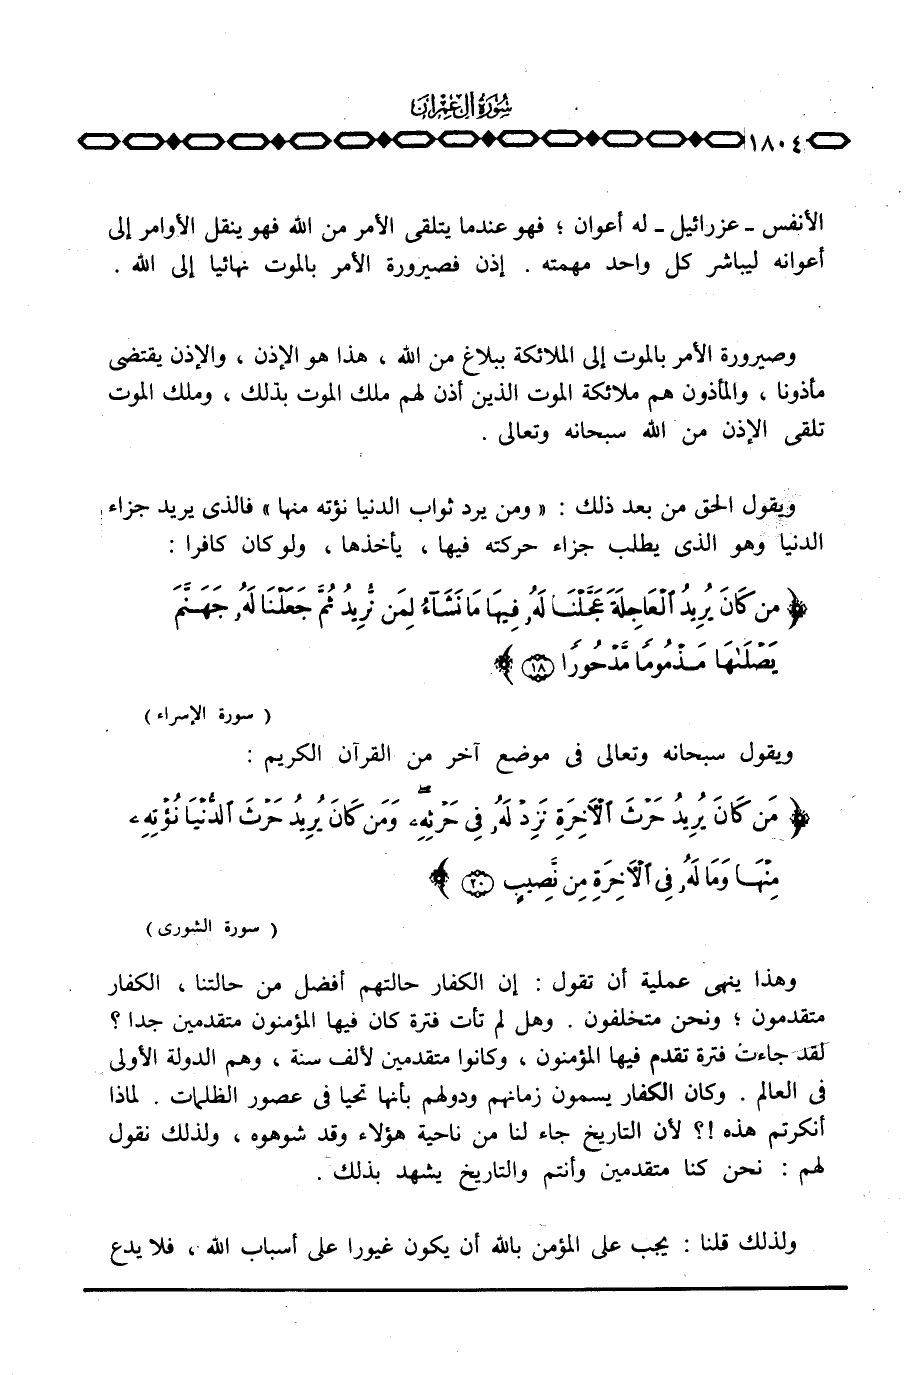 سُورَةُ آلِ عِمْرَان
١٨٠٤
الأنفس ـ عزرائيل ـ له أعوان ؛ فهو عندما يتلقى الأمر من الله فهو ينقل الأوامر إلى
أعوانه ليباشر كل واحد مهمته . إذن فصيرورة الأمر بالموت نهائيا إلى الله .
وصيرورة الأمر بالموت إلى الملائكة ببلاغ من الله ، هذا هو الإذن ، والإذن يقتضى
مأذونا ، والمأذون هم ملائكة الموت الذين أذن لهم ملك الموت بذلك ، وملك الموت
تلقى الإذن من الله سبحانه وتعالى .
ويقول الحق من بعد ذلك : « ومن يرد ثواب الدنيا نؤته منها » فالذى يريد جزاء
الدنيا وهو الذى يطلب جزاء حركته فيها ، يأخذها ، ولو كان كافرا :
﴿ مَن كَانَ يُرِيدُ ٱلْعَاجِلَةَ عَجَّلْنَا لَهُۥ فِيهَا مَا نَشَآءُ لِمَن نُّرِيدُ ثُمَّ جَعَلْنَا لَهُۥ جَهَنَّمَ
يَصْلَىٰهَا مَذْمُومًا مَّدْحُورًا ١٨ ﴾
( سورة الإسراء )
ويقول سبحانه وتعالى فى موضع آخر من القرآن الكريم :
﴿ مَن كَانَ يُرِيدُ حَرْثَ ٱلْآخِرَةِ نَزِدْ لَهُۥ فِى حَرْثِهِۦ وَمَن كَانَ يُرِيدُ حَرْثَ ٱلدُّنْيَا نُؤْتِهِۦ
مِنْهَا وَمَا لَهُۥ فِى ٱلْآخِرَةِ مِن نَّصِيبٍ ٢٠ ﴾
( سورة الشورى )
وهذا ينهى عملية أن تقول : إن الكفار حالتهم أفضل من حالتنا ، الكفار
متقدمون ؛ ونحن متخلفون . وهل لم تأت فترة كان فيها المؤمنون متقدمين جدا ؟
لقد جاءت فترة تقدم فيها المؤمنون ، وكانوا متقدمين لألف سنة ، وهم الدولة الأولى
فى العالم . وكان الكفار يسمون زمانهم ودولهم بأنها تحيا فى عصور الظلمات . لماذا
أنكرتم هذه !؟ لأن التاريخ جاء لنا من ناحية هؤلاء وقد شوهوه ، ولذلك نقول
لهم : نحن كنا متقدمين وأنتم والتاريخ يشهد بذلك .
ولذلك قلنا : يجب على المؤمن بالله أن يكون غيورا على أسباب الله ، فلا يدع